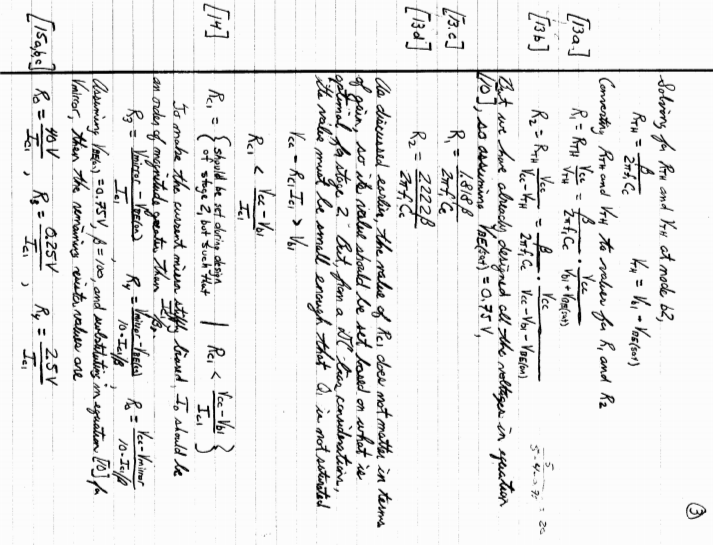 ③
Solving for R_TH and V_TH at node b2,
R_TH = β / (2πf_1C_c)    V_TH = V_b1 - V_BE(sat)
Converting R_TH and V_TH to values for R_1 and R_2
[13a] R_1 = R_TH V_cc/V_TH = β/(2πf_1C_c) · V_cc/(V_b1 + V_BE(on))
[13b] R_2 = R_TH V_cc/(V_cc - V_TH) = β/(2πf_1C_c) · V_cc/(V_cc - V_b1 - V_BE(on))
But, we have already designed all the voltages in equation
[10], so assuming V_BE(sat) = 0.75 V,
[13.c] R_1 = 1.818β / (2πf_1C_c)
[13d] R_2 = 2.222β / (2πf_1C_c)
As discussed earlier, the value of R_c1 does not matter in terms
of gain, so its value should be set based on what is
optimal for stage 2. But, from a DC bias consideration,
its value must be small enough that Q_1 is not saturated
V_cc - R_c1I_c1 > V_b1
R_c1 < (V_cc - V_b1)/I_c1
[14] R_c1 = { should be set during design of stage 2, but such that | R_c1 < (V_cc - V_b1)/I_c1 }
To make the current mirror stiffly biased, I_0 should be
an order of magnitude greater than I_c1/β.
R_3 = (V_mirror - V_BE(on))/I_c1    R_4 = (V_mirror - V_BE(on))/(10·I_c1/β),    R_0 = (V_cc - V_mirror)/(10·I_c1/β)
Assuming V_BE(on) = 0.75V, β = 100, and substituting in equation [10] for
V_mirror, then the remaining resistor values are
[15a,b,c] R_0 = 40 V/I_c1 , R_3 = 0.25 V/I_c1 , R_4 = 2.5 V/I_c1